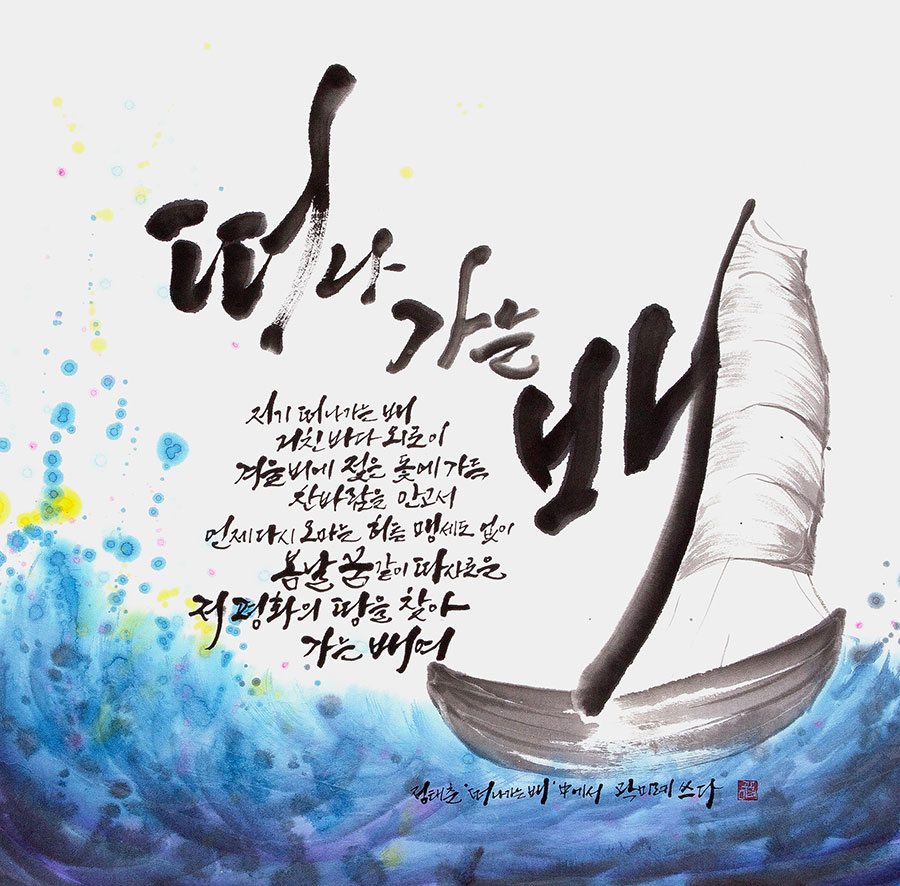 떠나
가는
배
저기 떠나가는 배
거친 바다 외로이
겨울비에 젖은 돛에 가득
찬바람을 안고서
언제 다시 오마는 허튼 맹세도 없이
봄날 꿈같이 따사로운
저 평화의 땅을 찾아
가는 배여
정태춘 '떠나가는 배' 中에서 곽미례 쓰다